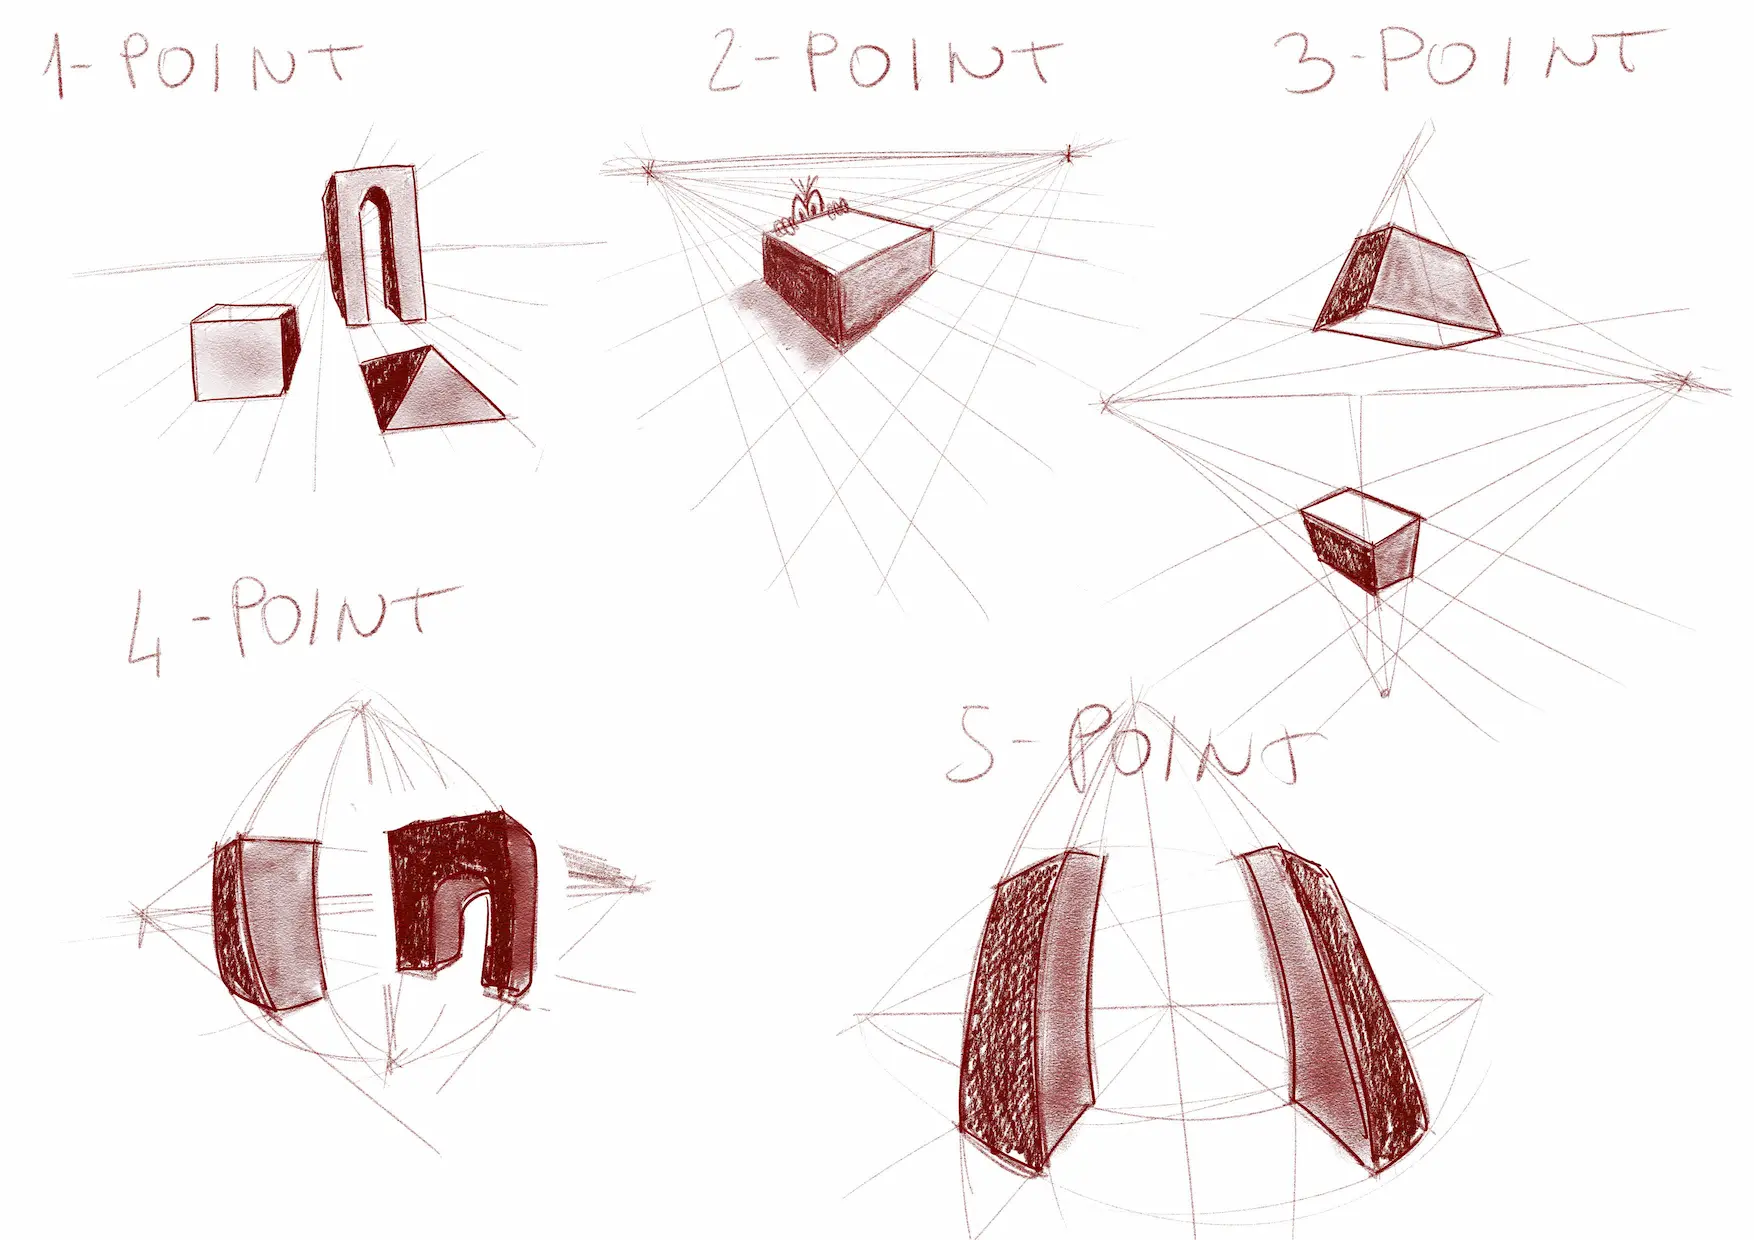 1-POINT
2-POINT
3-POINT
4-POINT
5-POINT